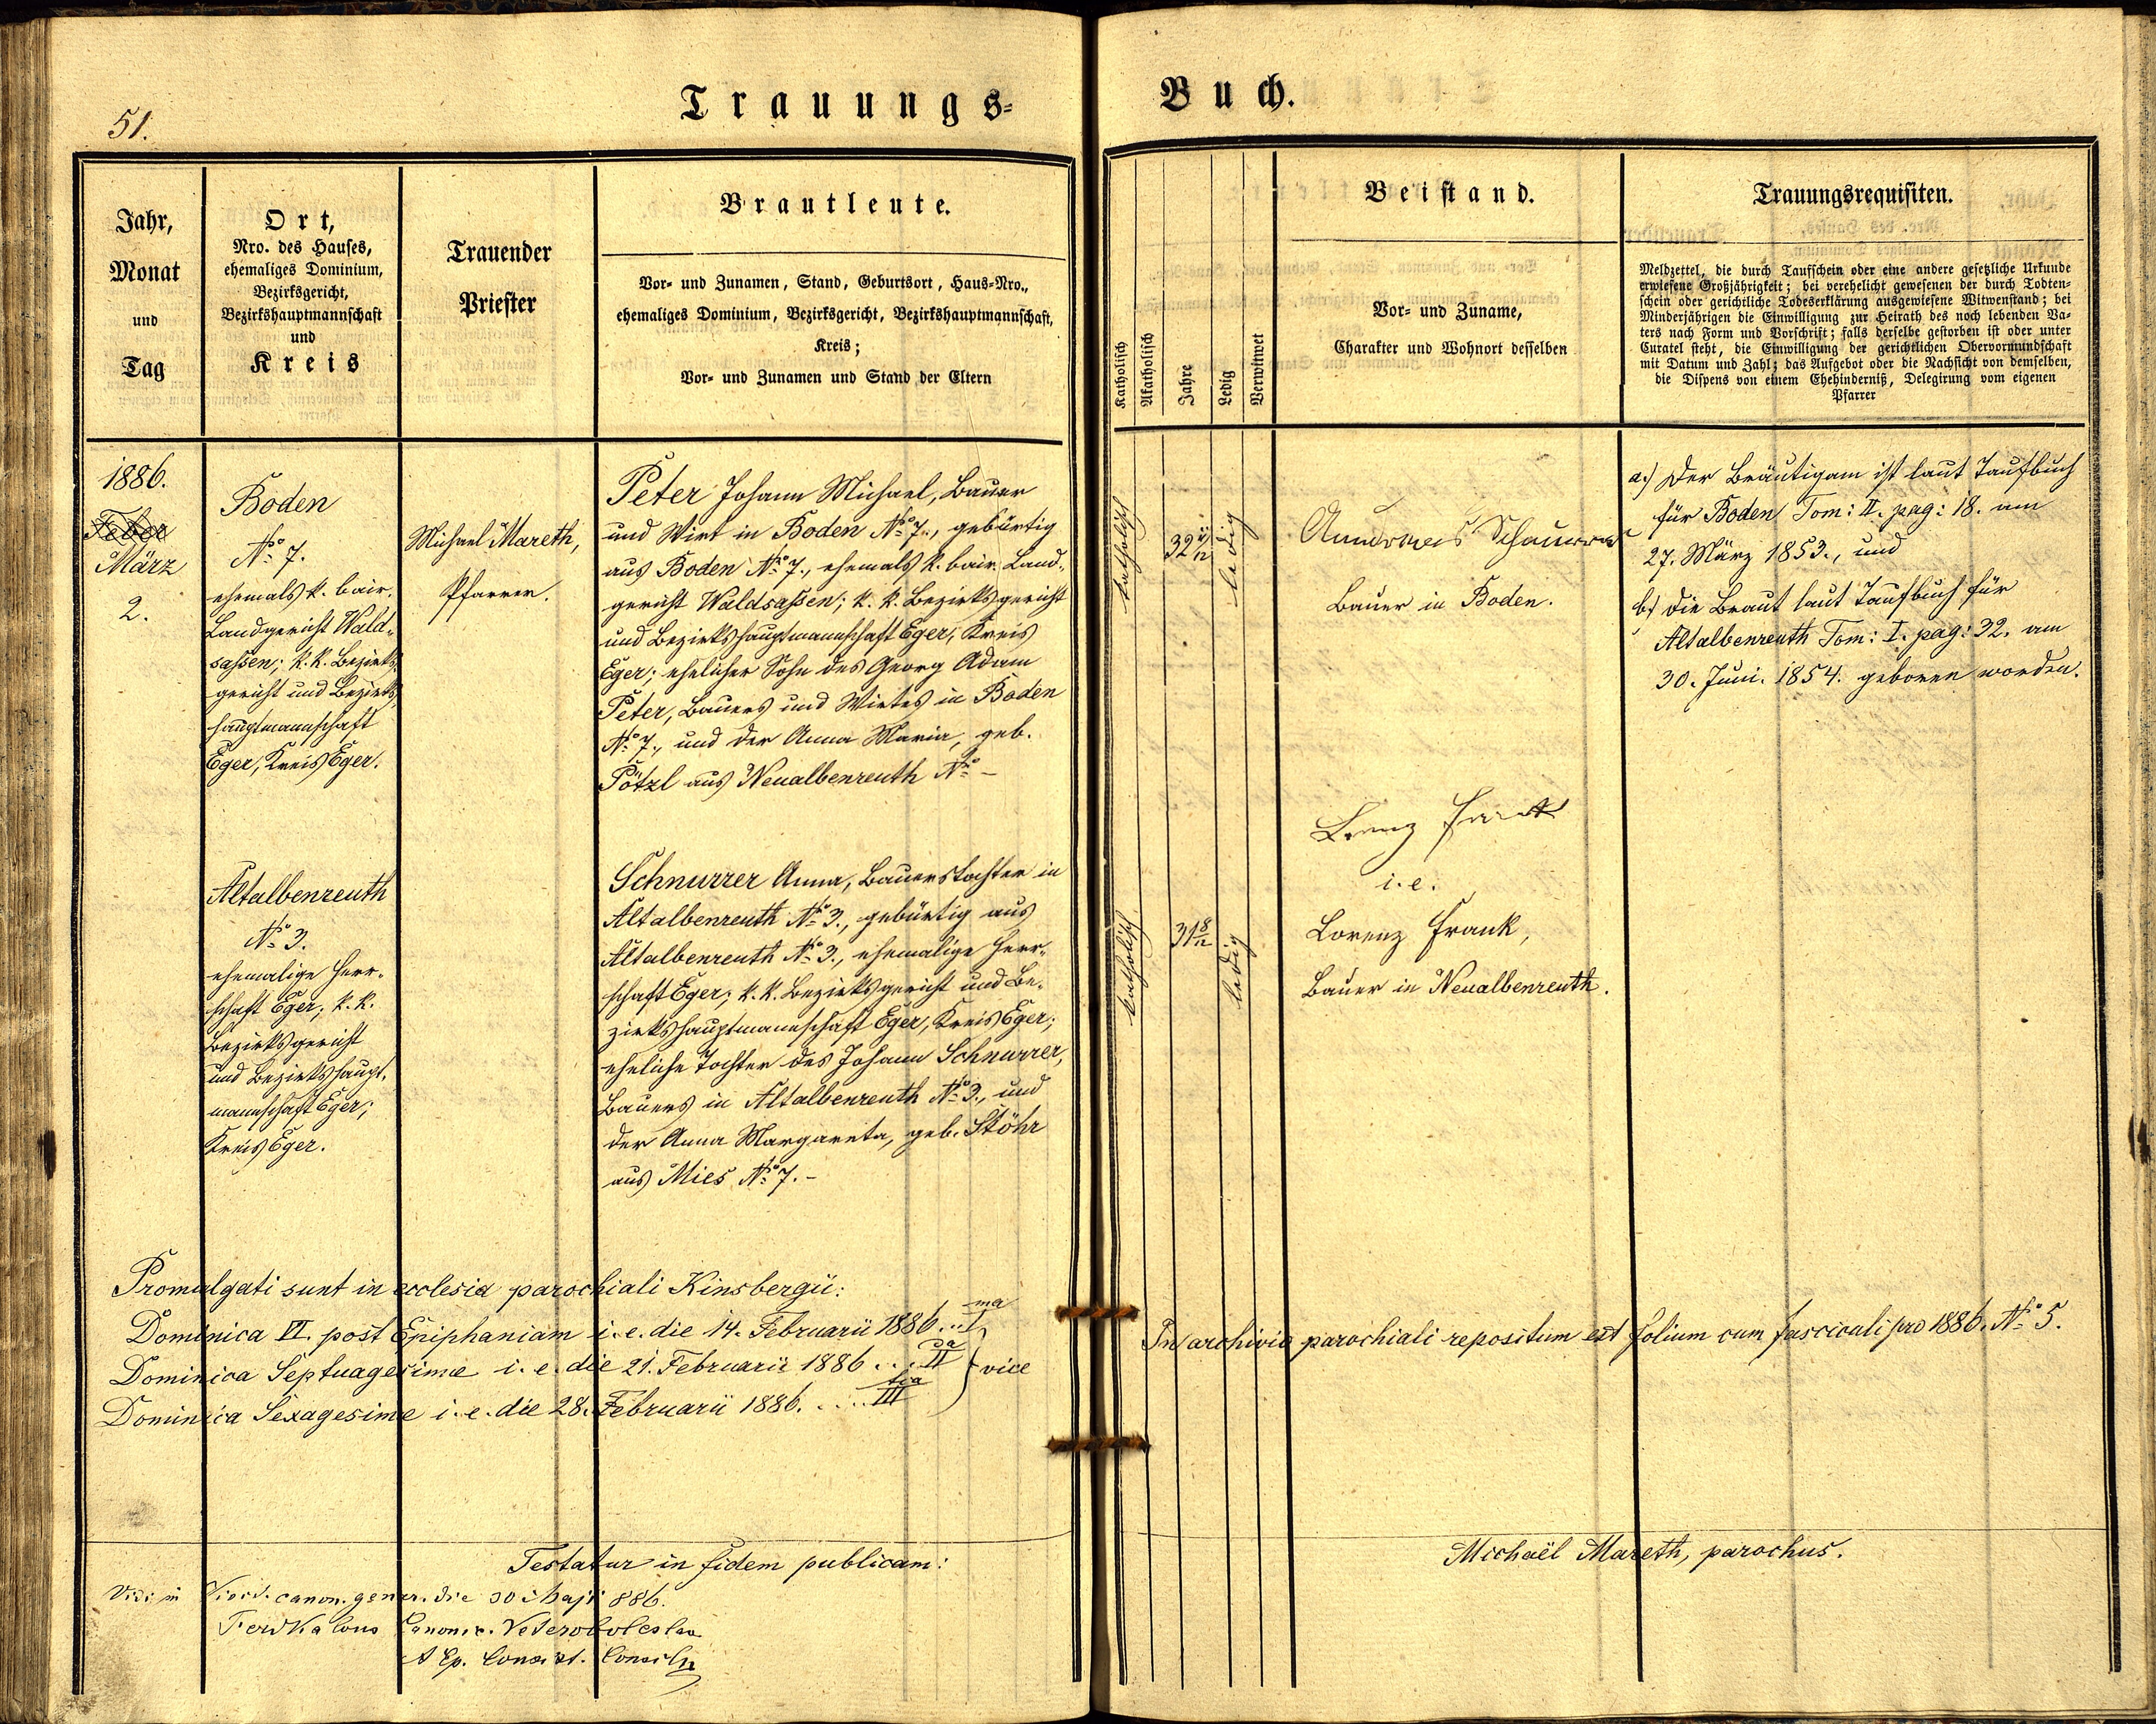 51.
Trauungs=
Buch.
Jahr,
Monat
und
Tag
Ort,
Nro. des Hauses,
ehemaliges Dominium,
Bezirksgericht,
Bezirkshauptmannschaft
und
Kreis
Trauender
Priester
Brautleute.
Vor- und Zunamen, Stand, Geburtsort, Haus-Nro.,
ehemaliges Dominium, Bezirksgericht, Bezirkshauptmannschaft,
Kreis;
Vor- und Zunamen und Stand der Eltern
Katholisch
Akatholisch
Jahre
Ledig
Verwitwet
Beistand.
Vor- und Zuname,
Charakter und Wohnort desselben
Trauungsrequisiten.
Meldzettel, die durch Taufschein oder eine andere gesetzliche Urkunde
erwiesene Großjährigkeit; bei verehelicht gewesenen der durch Todten-
schein oder gerichtliche Todeserklärung ausgewiesene Witwenstand; bei
Minderjährigen die Einwilligung zur Heirath des noch lebenden Va-
ters nach Form und Vorschrift; falls derselbe gestorben ist oder unter
Curatel steht, die Einwilligung der gerichtlichen Obervormundschaft
mit Datum und Zahl; das Aufgebot oder die Nachsicht von demselben,
die Dispens von einem Ehehinderniß, Delegirung vom eigenen
Pfarrer
1886.
Feber
März
2.
Boden
No 7.
ehemals k. bair.
Landgericht Wald-
sassen; k. k. Bezirks-
gericht und Bezirks-
hauptmannschaft
Eger, Kreis Eger.
Michael Mareth,
Pfarrer.
Peter Johann Michael, Bauer
und Wirt in Boden No 7., gebürtig
aus Boden No 7., ehemals k. bair. Land-
gericht Waldsassen; k. k. Bezirksgericht
und Bezirkshauptmannschaft Eger, Kreis
Eger; ehelicher Sohn des Georg Adam
Peter, Bauers und Wirtes in Boden
No 7., und der Anna Maria, geb.
Pötzl aus Neualbenreuth No –
katholisch
32 11/12
ledig
Andreas Schnurrer
Bauer in Boden.
a.) Der Bräutigam ist laut Taufbuch
für Boden Tom: II. pag: 18. am
27. März 1853., und
b) die Braut laut Taufbuch für
Altalbenreuth Tom: I. pag: 32. am
30. Juni. 1854. geboren worden.
Altalbenreuth
No 3.
ehemalige Herr-
schaft Eger; k. k.
Bezirksgericht
und Bezirkshaupt-
mannschaft Eger;
Kreis Eger.
Schnurrer Anna, Bauerstochter in
Altalbenreuth No 3., gebürtig aus
Altalbenreuth No 3., ehemalige Herr-
schaft Eger; k. k. Bezirksgericht und Be-
zirkshauptmannschaft Eger, Kreis Eger;
eheliche Tochter des Johann Schnurrer,
Bauers in Altalbenreuth No 3., und
der Anna Margareta, geb. Stöhr
aus Mies No 7. –
katholisch
31 8/12
ledig
Lorenz Frank
i. e.
Lorenz Frank,
Bauer in Neualbenreuth.
Promulgati sunt in ecclesia parochiali Kinsbergü:
Dominica VI. post Epiphaniam i. e. die 14. Februarii 1886 . . I ma
Dominica Septuagesimæ i. e. die 21. Februarii 1886 . . . II da } vice
Dominica Sexagesimæ i. e. die 28. Februarii 1886. . . . . III tia
In archivio parochiali repositum est folium cum fasciculi pro 1886. No 5.
Testatur in fidem publicam:
Michaël Mareth, parochus.
Vidi in canon. gener. die 30 Maji 886.
Canonic. Veteroboleslav
A Ep. Consist. Consil